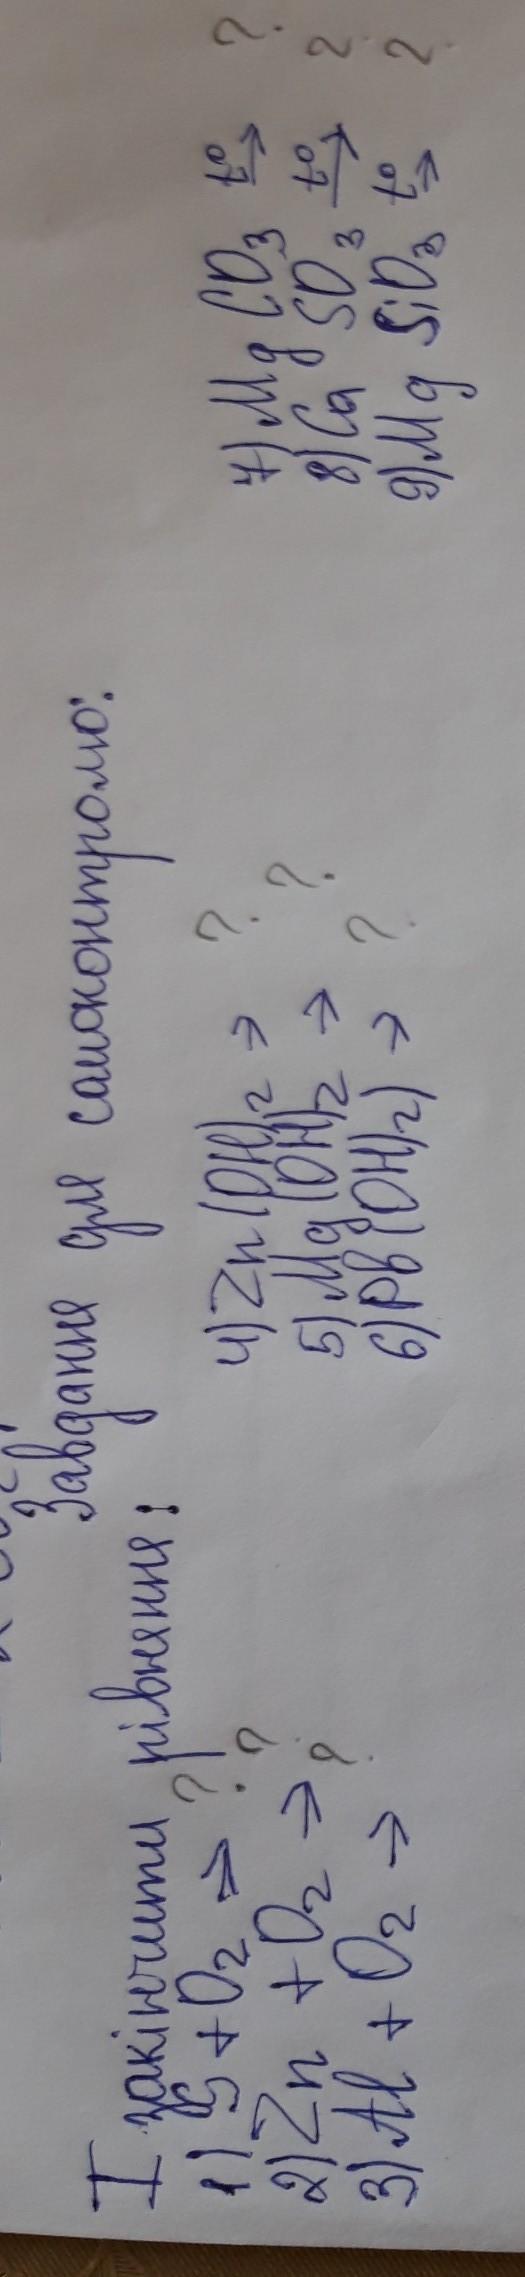 Завдання для самоконтролю:
I закінчити рівняння:
1) S + O2 → ?
2) Zn + O2 → ?
3) Al + O2 → ?
4) Zn(OH)2 → ?
5) Mg(OH)2 → ?
6) Pb(OH)2) → ?
7) MgCO3 t° → ?
8) CaSO3 t° → ?
9) MgSiO3 t° → ?